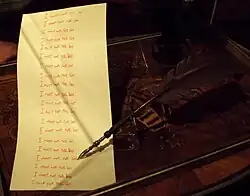 I must not tell lies
I must not tell lies
I must not tell lies
I must not tell lies
I must not tell lies
I must not tell lies
I must not tell lies
I must not tell lies
I must not tell lies
I must not tell lies
I must not tell lies
I must not tell lies
I must not tell lies
I must not tell lies
I must not tell lies
I must not tell lies
I must not tell lies
I must not tell lies
I must not tell lies
I must not tell lies